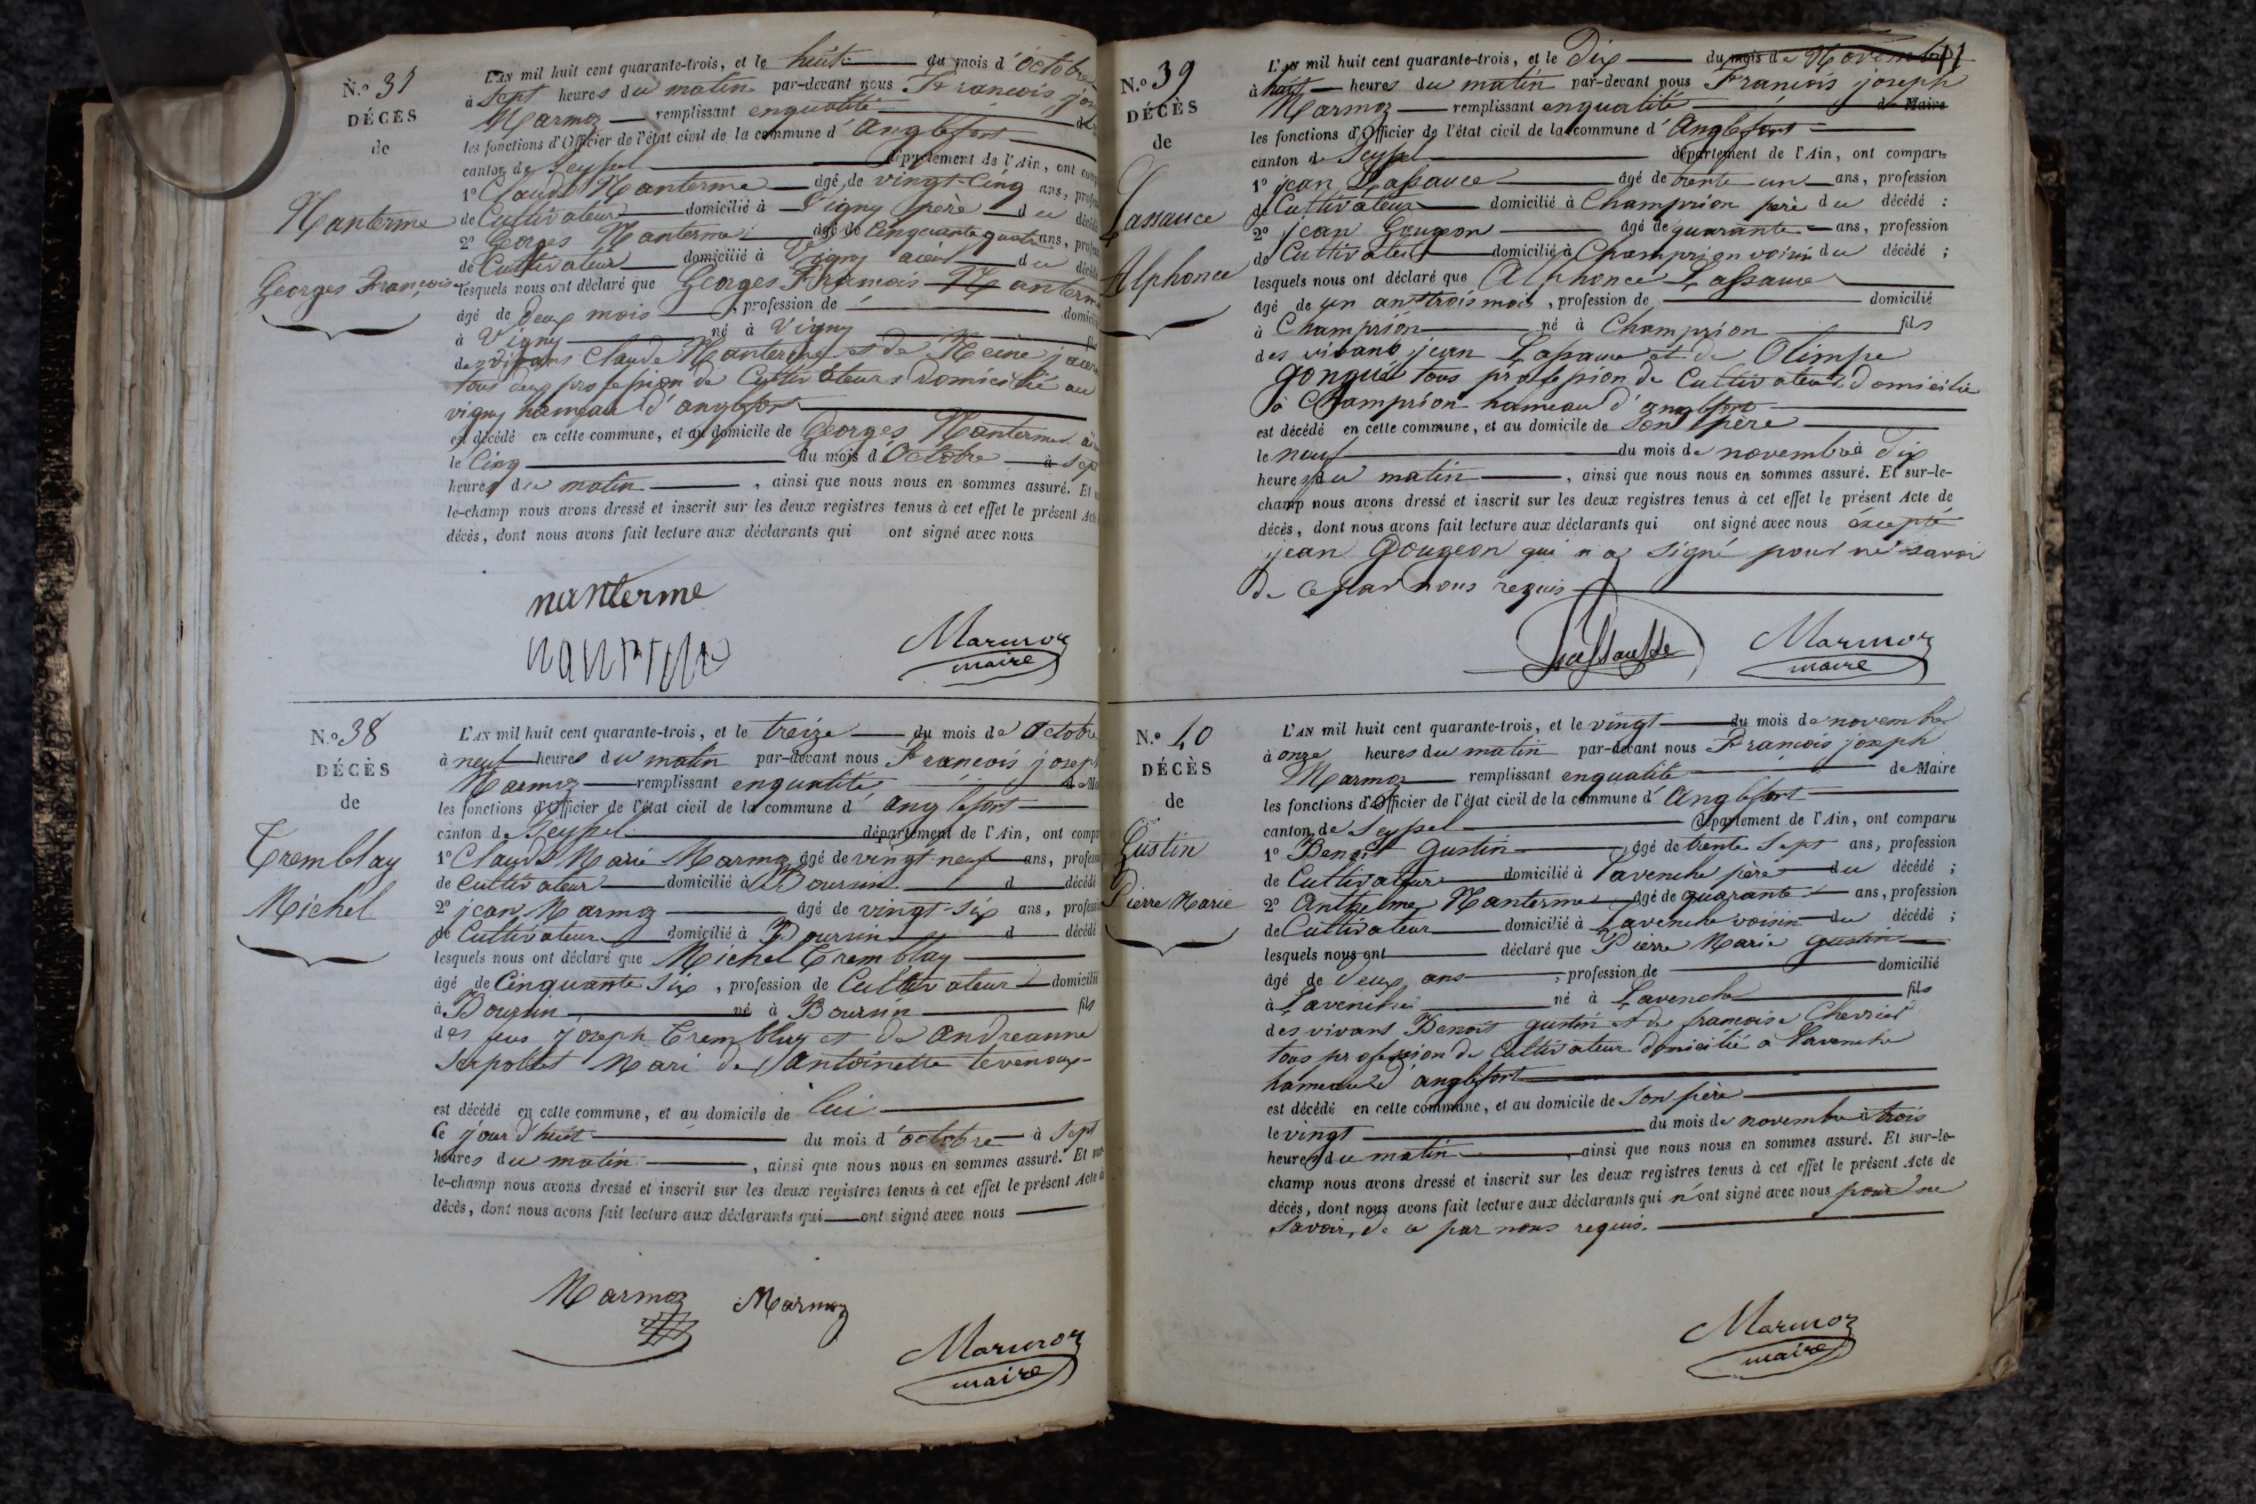 N.º 37
DÉCÈS
de
Nanterme
Georges François
L'AN mil huit cent quarante-trois, et le huit du mois d'Octobre
à sept heures du matin par-devant nous François
Marmoz remplissant enqualité
les fonctions d'Officier de l'état civil de la commune d'Anglefort
canton de Seyssel département de l'Ain, ont
1º Claude Nanterme âgé de vingt-Cinq ans,
de Cultivateur domicilié à Vigny père du
2º Georges Nanterme âgé de Cinquante quatre ans,
de Cultivateur domicilié à Vigny aieul du
lesquels nous ont déclaré que Georges François Nanterme
âgé de Deux mois, profession de domicilié
à Vigny né à Vigny
des vivans Claude Nanterme et de Reine
tous deux profession de Cultivateurs domicilié au
vigny hameau d'anglefort
est décédé en cette commune, et au domicile de Georges Nanterme
le Cinq du mois d'Octobre à sept
heures du matin, ainsi que nous nous en sommes assuré. Et
le-champ nous avons dressé et inscrit sur les deux registres tenus à cet effet le présent Acte
décès, dont nous avons fait lecture aux déclarants qui ont signé avec nous
nanterme
Marmoz
maire
N.º 38
DÉCÈS
de
Tremblay
Michel
L'AN mil huit cent quarante-trois, et le treize du mois de Octobre
à neuf heures du matin par-devant nous François joseph
Marmoz remplissant enqualité
les fonctions d'Officier de l'état civil de la commune d'anglefort
canton de Seyssel département de l'Ain, ont
1º Claude Marie Marmoz âgé de vingt-neuf ans,
de Cultivateur domicilié à Boursin d décédé
2º jean Marmoz âgé de vingt-six ans,
de Cultivateur domicilié à Boursin d décédé
lesquels nous ont déclaré que Michel Tremblay
âgé de Cinquante six, profession de Cultivateur domicilié
à Boursin né à Boursin fils
des feus joseph Tremblay et de andreanne
Serpollet Mari de antoinette tevenoux
est décédé en cette commune, et au domicile de lui
le jour d'huit du mois d'octobre à sept
heures du matin, ainsi que nous nous en sommes assuré. Et
le-champ nous avons dressé et inscrit sur les deux registres tenus à cet effet le présent Acte
décès, dont nous avons fait lecture aux déclarants qui ont signé avec nous
Marmoz Marmoz
Marmoz
maire
N.º 39
DÉCÈS
de
Lassauce
Alphonce
L'AN mil huit cent quarante-trois, et le Dix du mois de Novembre
à huit heures du matin par-devant nous François joseph
Marmoz remplissant enqualité de Maire
les fonctions d'Officier de l'état civil de la commune d'Anglefort
canton de Seyssel département de l'Ain, ont comparu
1º jean Lassauce âgé de trente-un ans, profession
de Cultivateur domicilié à Champrion père du décédé ;
2º jean Gougeon âgé de quarante ans, profession
de Cultivateur domicilié à Champrion voisin du décédé ;
lesquels nous ont déclaré que Alphonce Lassauce
âgé de un an trois mois, profession de domicilié
à Champrion né à Champrion fils
des vivans jean Lassauce et de Olimpe
tous profession de Cultivateurs domicilié
à Champrion hameau d'anglefort
est décédé en cette commune, et au domicile de Son père
le neuf du mois de novembre à Dix
heures du matin, ainsi que nous nous en sommes assuré. Et sur-le-
champ nous avons dressé et inscrit sur les deux registres tenus à cet effet le présent Acte de
décès, dont nous avons fait lecture aux déclarants qui ont signé avec nous excepté
jean Gougeon qui n'a signé pour ne savoir
de ce par nous requis
Marmoz
maire
N.º 40
DÉCÈS
de
Gustin
Pierre Marie
L'AN mil huit cent quarante-trois, et le vingt du mois de novembre
à onze heures du matin par-devant nous François joseph
Marmoz remplissant enqualité de Maire
les fonctions d'Officier de l'état civil de la commune d'Anglefort
canton de Seyssel département de l'Ain, ont comparu
1º Benoit Gustin âgé de trente sept ans, profession
de Cultivateur domicilié à Lavenche père du décédé ;
2º Anthelme Nanterme âgé de quarante ans, profession
de Cultivateur domicilié à Lavenche voisin du décédé ;
lesquels nous ont déclaré que Pierre Marie Gustin
âgé de Deux ans, profession de domicilié
à Lavenche né à Lavenche fils
des vivans Benoit gustin et de françoise Chevrier
tous profession de Cultivateur domicilié a Lavenche
hameau d'anglefort
est décédé en cette commune, et au domicile de Son père
le vingt du mois de novembre à trois
heures du matin, ainsi que nous nous en sommes assuré. Et sur-le-
champ nous avons dressé et inscrit sur les deux registres tenus à cet effet le présent Acte de
décès, dont nous avons fait lecture aux déclarants qui n'ont signé avec nous pour ne
Savoir, de ce par nous requis.
Marmoz
maire